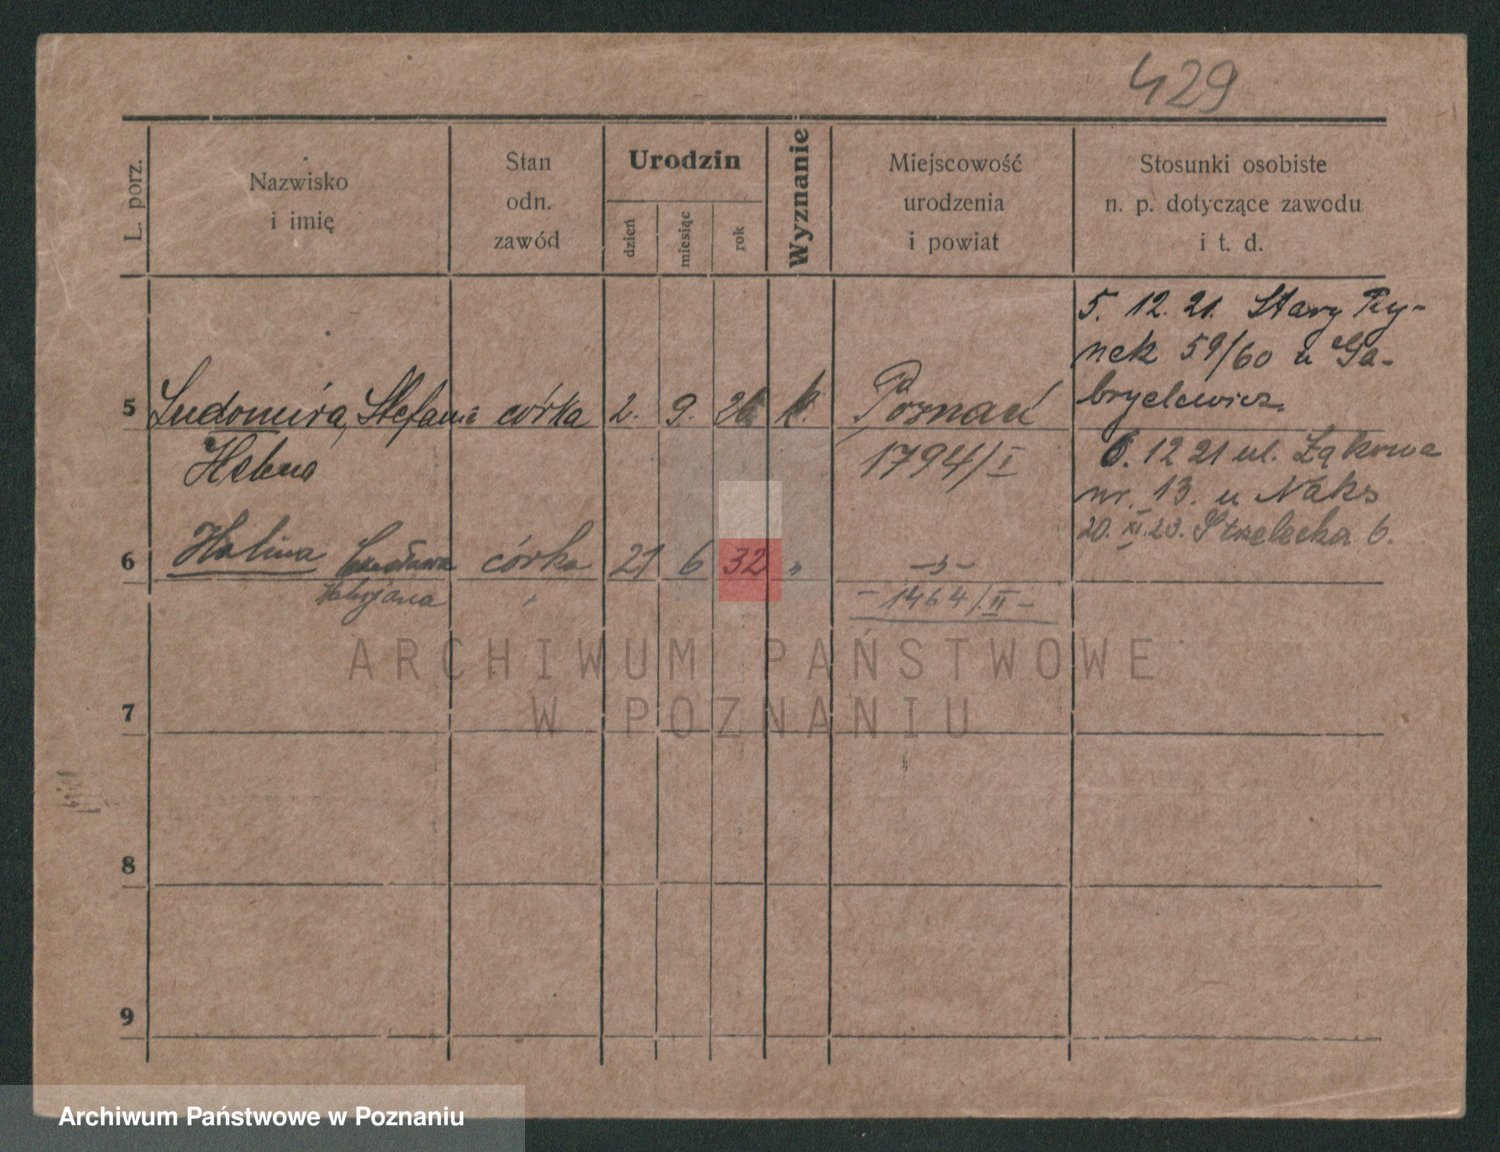 429
L. porz.
Nazwisko
i imię
Stan
odn.
zawód
Urodzin
dzień
miesiąc
rok
Wyznanie
Miejscowość
urodzenia
i powiat
Stosunki osobiste
n. p. dotyczące zawodu
i t. d.
5. 12. 21. Stary Ry-
nek 59/60 u Ga-
brycelewicz.
5 Ludomira, Stefania córka 2. 9. k. Poznań
Helena 1794/I
6. 12 21 ul. Łąkowa
nr. 13. u Naks
20. XI 23. Strzelecka 6.
6 Halina córka 21 6 32 "
- 1464/II -
7
8
9
ARCHIWUM PAŃSTWOWE
W POZNANIU
Archiwum Państwowe w Poznaniu